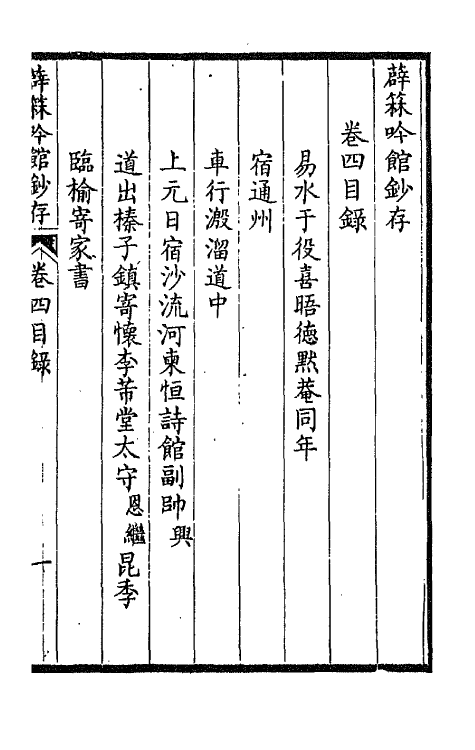 薜箖吟館鈔存
卷四目錄
易水于役喜晤德默菴同年
宿通州
車行澱溜道中
上元日宿沙流河柬恒詩館副帥興
道出榛子鎮寄懷李芾堂太守恩繼昆季
臨榆寄家書
薜箖吟館鈔存 卷四目錄 一